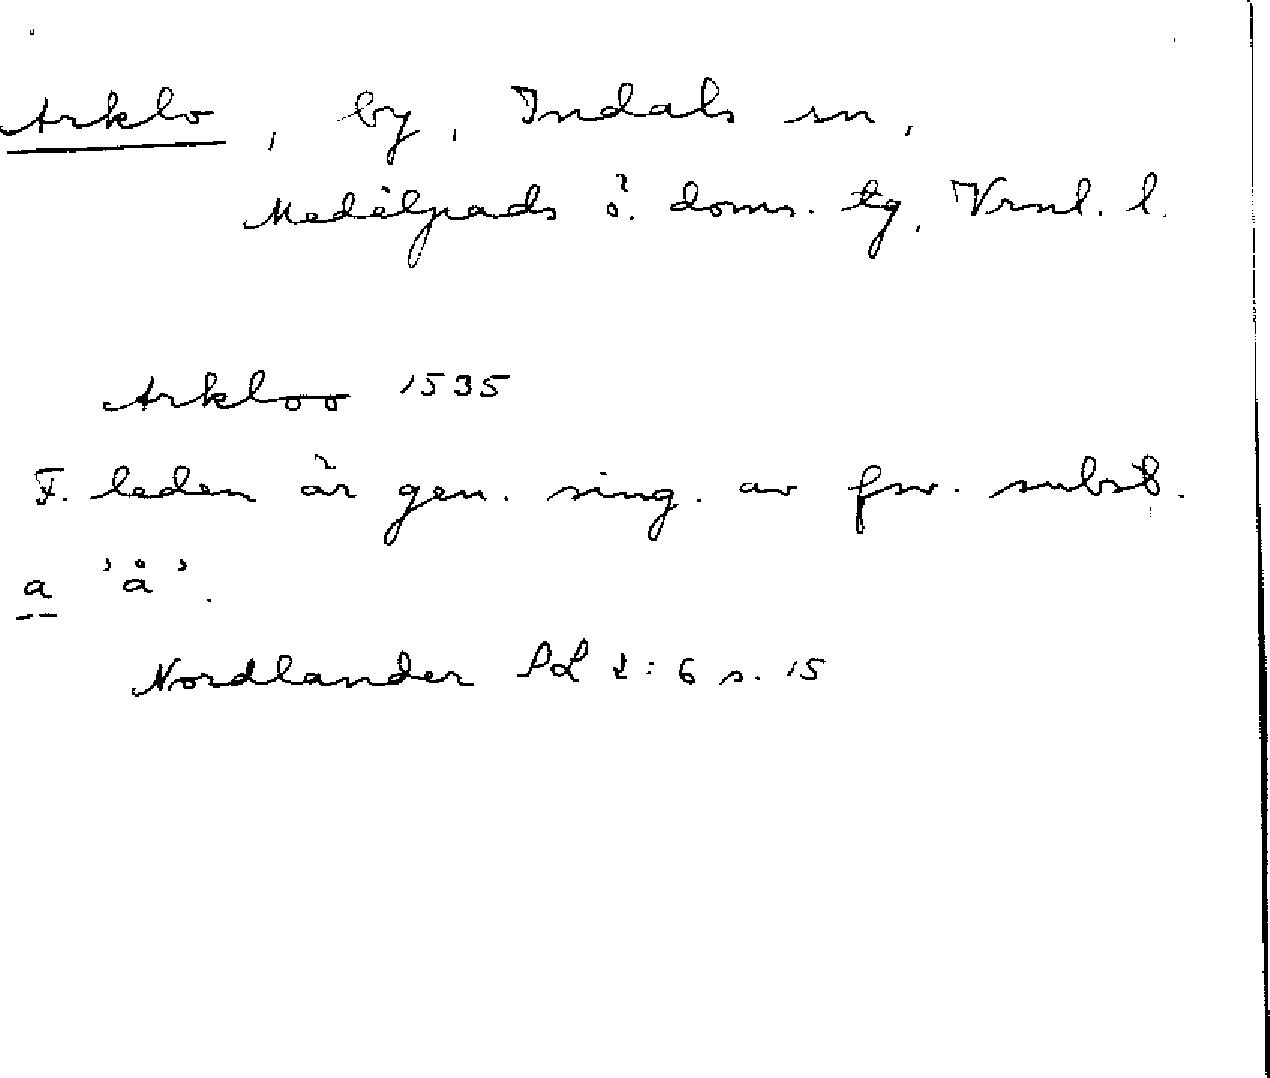 Arklo, by, Indals sn,
Medelpads ö. doms. tg, Vrnl. l.
Arkloo 1535
F. leden är gen. sing. av fsv. subst.
a 'å'.
Nordlander 2:6 s. 15